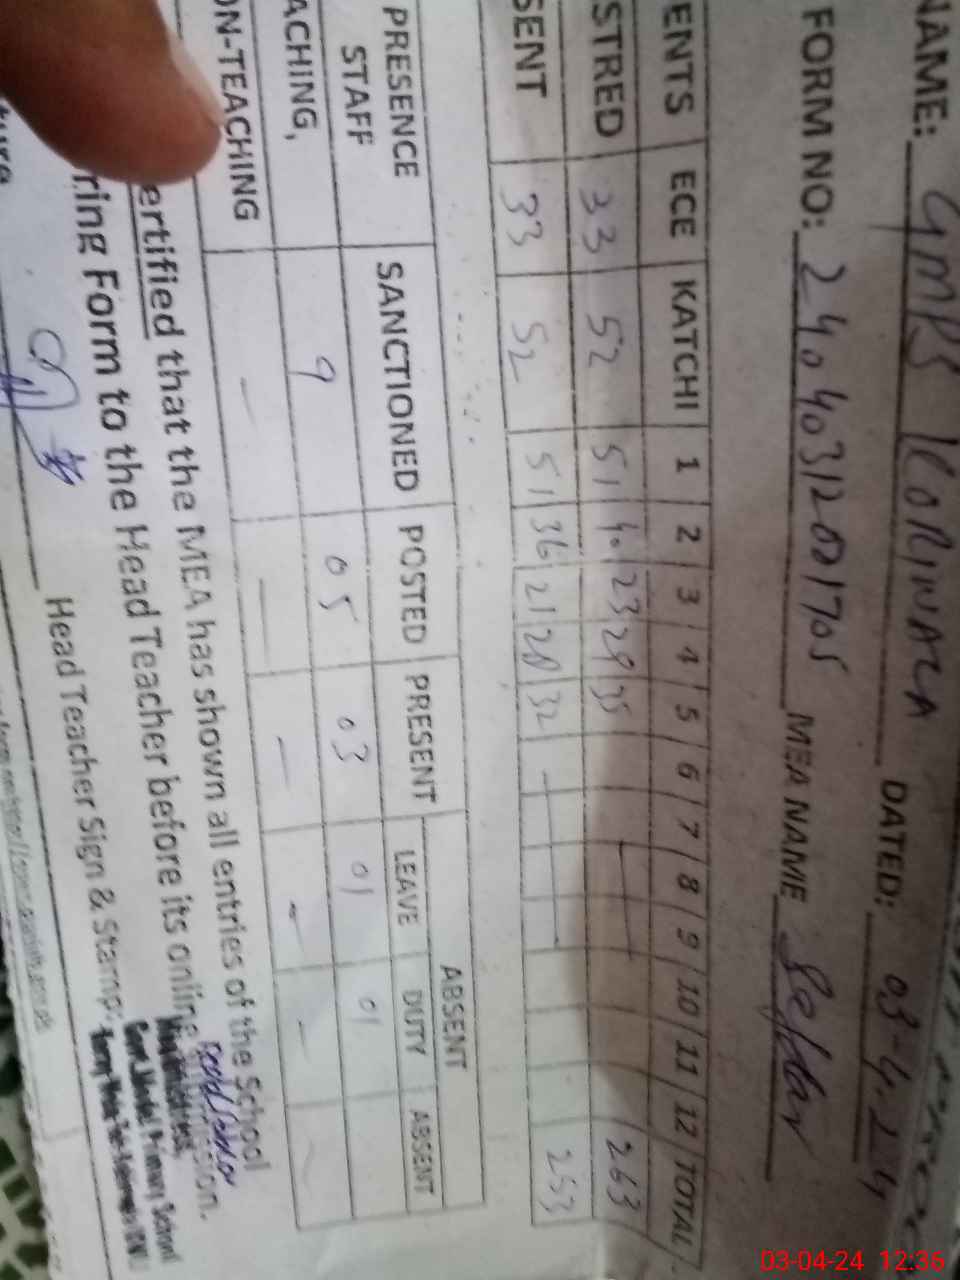 NAME: GMPS KORIWALA DATED: 03-4-24
FORM NO: 24040312001705 MEA NAME Safdar
ENTS ECE KATCHI 1 2 3 4 5 6 7 8 9 10 11 12 TOTAL
STRED 33 52 51 40 23 29 35 263
SENT 33 52 51 36 21 28 32 253
PRESENCE SANCTIONED POSTED PRESENT ABSENT
STAFF LEAVE DUTY ABSENT
ACHING, 9 05 03 01 01
ON-TEACHING - - - - - -
ertified that the MEA has shown all entries of the School
ring Form to the Head Teacher before its online
Head Teacher Sign & Stamp:
Govt. Model Primary School
ture
03-04-24 12:36